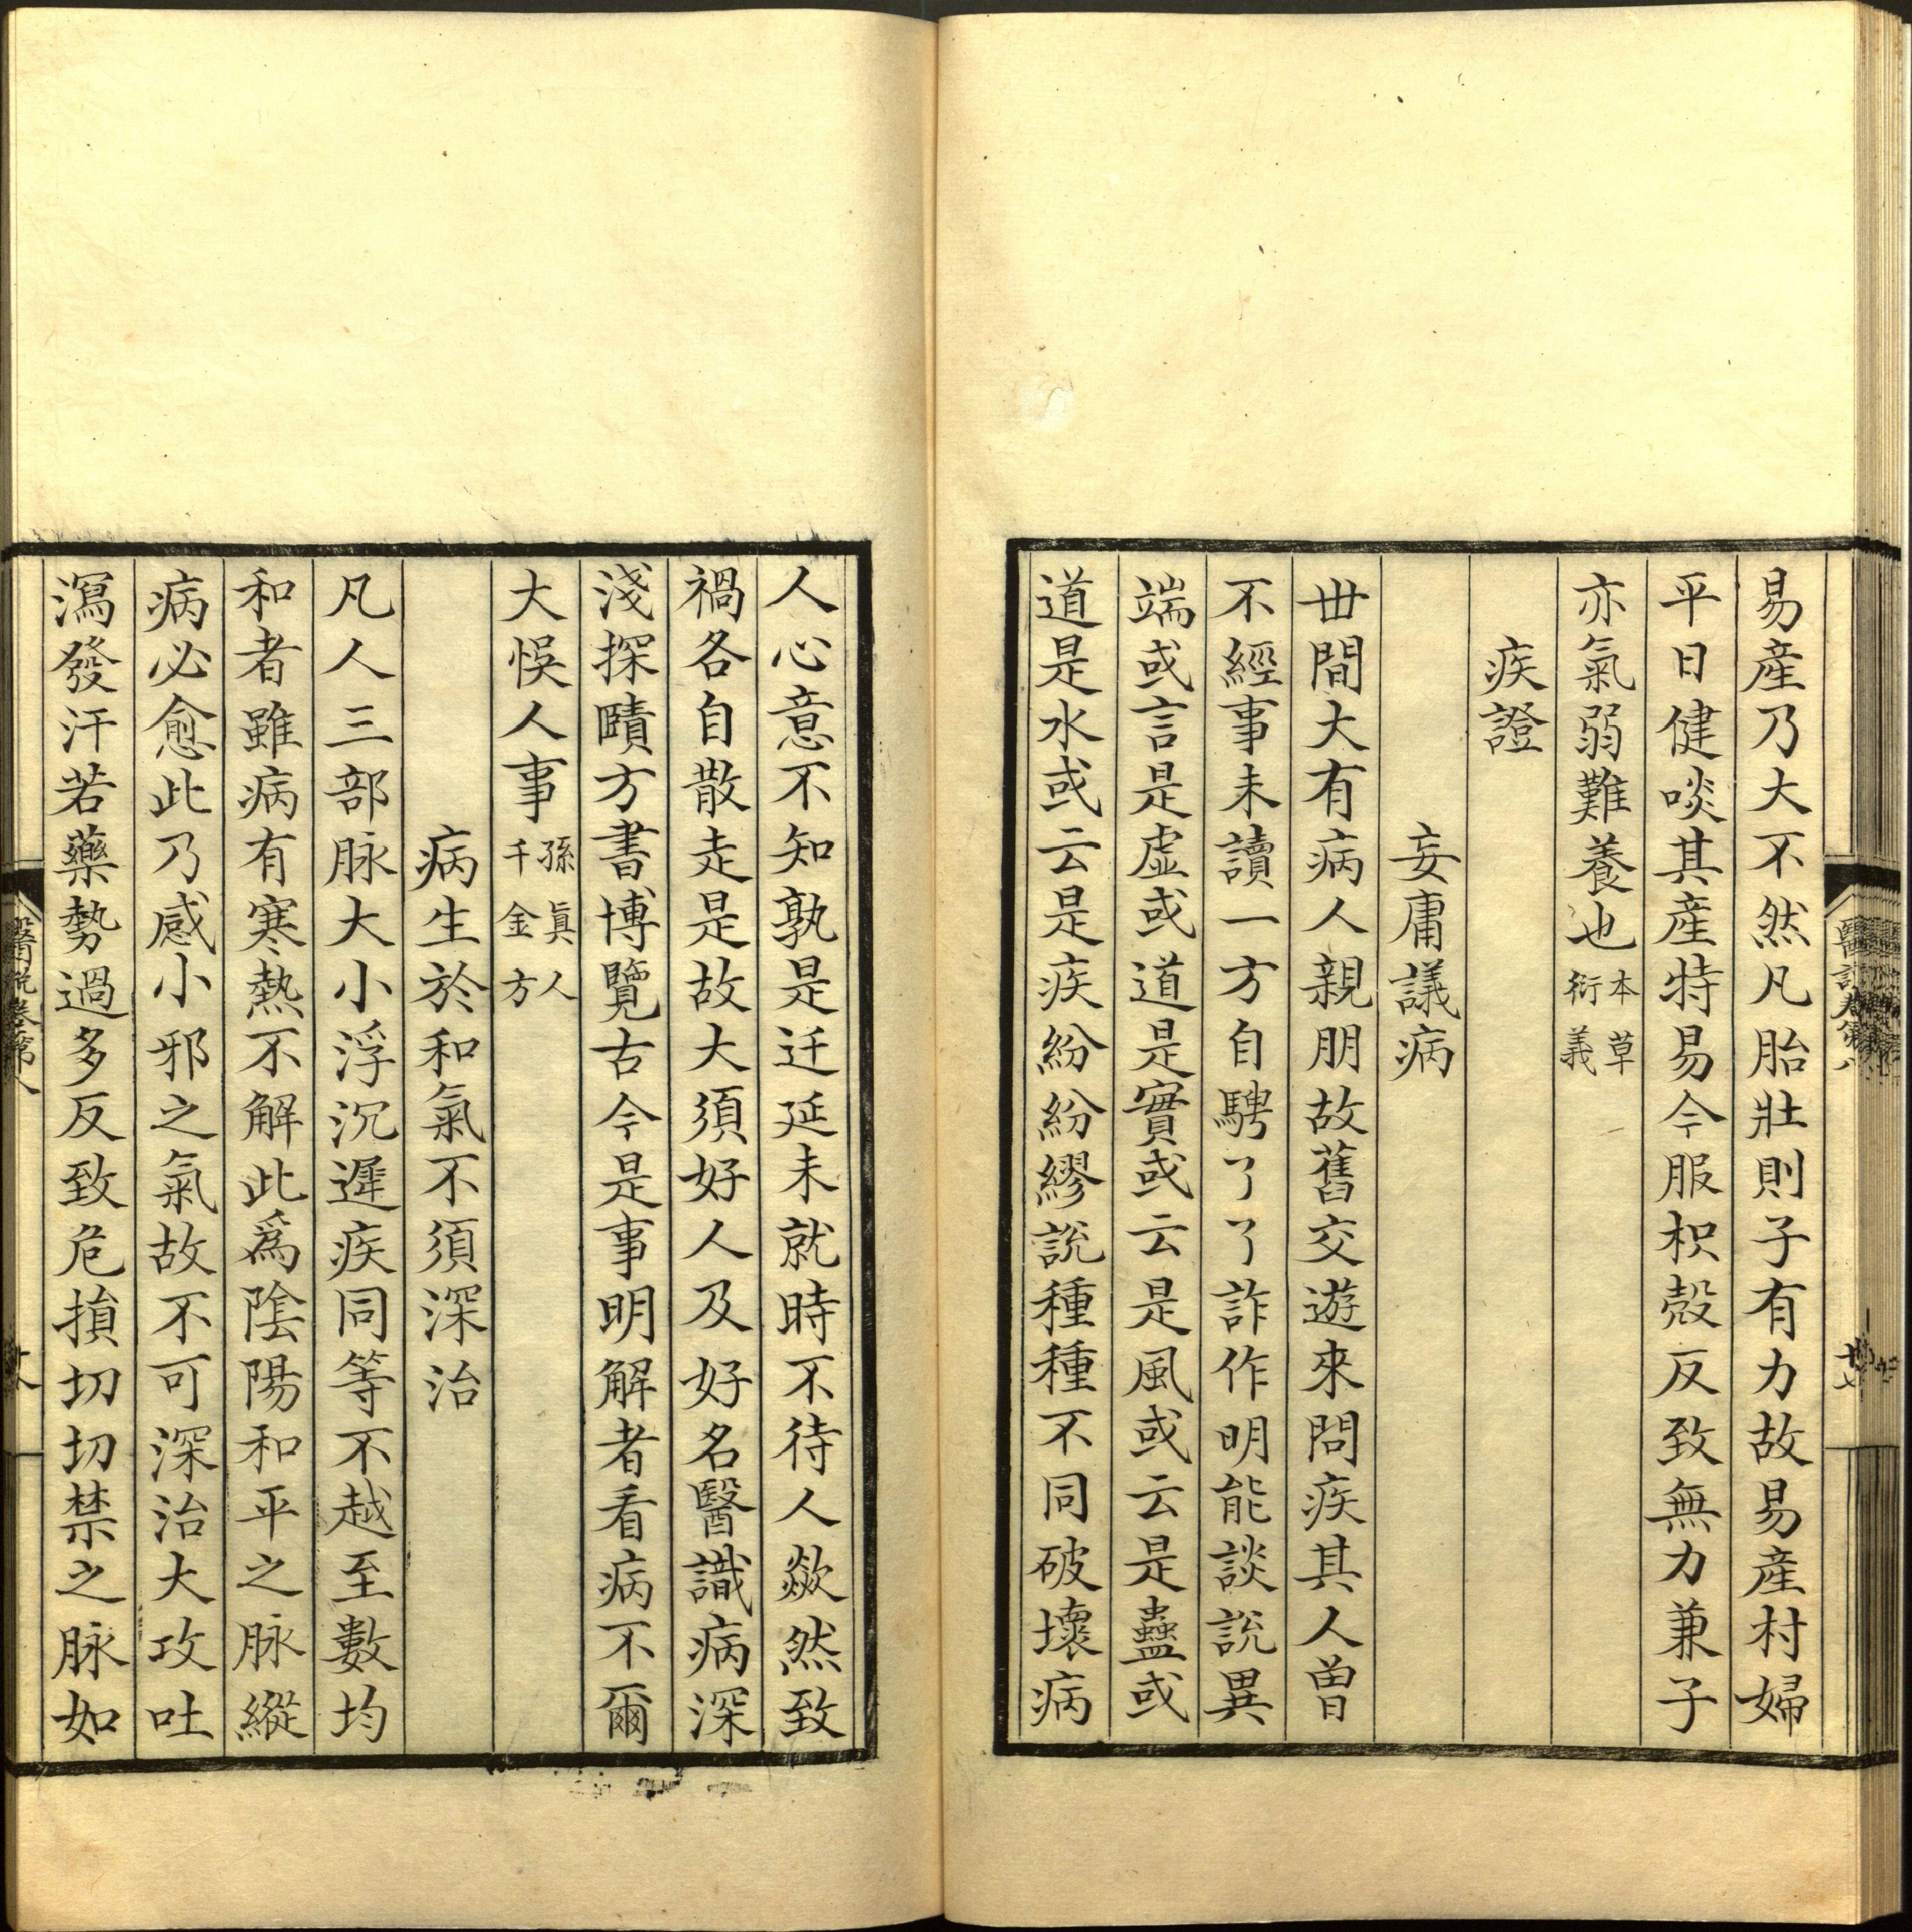 易產乃大不然凡胎壯則子有力故易產村婦
平日健啖其產特易今服枳殼反致無力兼子
亦氣弱難養也本草衍義
疾證
妄庸議病
丗間大有病人親朋故舊交遊來問疾其人曾
不經事未讀一方自騁了了詐作明能談說異
端或言是虛或道是實或云是風或云是蠱或
道是水或云是疾紛紛繆說種種不同破壞病
人心意不知孰是迁延未就時不待人歘然致
禍各自散走是故大須好人及好名醫識病深
淺探賾方書博覽古今是事明解者看病不爾
大悞人事孫眞人千金方
病生於和氣不須深治
凡人三部脉大小浮沉遲疾同等不越至數均
和者雖病有寒熱不解此爲陰陽和平之脉縱
病必愈此乃感小邪之氣故不可深治大攻吐
瀉發汗若藥勢過多反致危損切切禁之脉如
醫說卷第八
十八